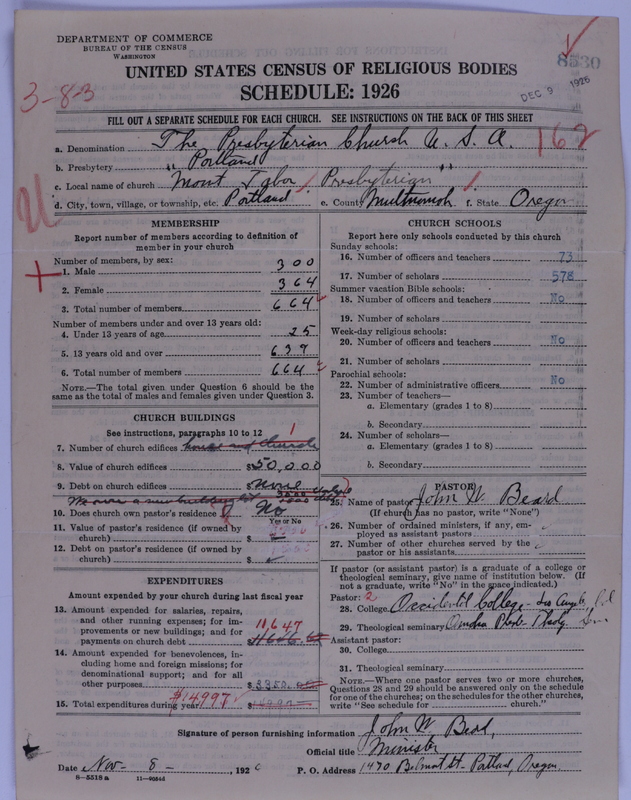 DEPARTMENT OF COMMERCE
BUREAU OF THE CENSUS
WASHINGTON
8530
DEC 9 1926
UNITED STATES CENSUS OF RELIGIOUS BODIES
SCHEDULE: 1926
3-8-3
FILL OUT A SEPARATE SCHEDULE FOR EACH CHURCH. SEE INSTRUCTIONS ON THE BACK OF THIS SHEET
a. Denomination The Presbyterian Church U. S. A. 162
b. Presbytery "Portland"
c. Local name of church Mount Tabor Presbyterian"
d. City, town, village, or township, etc. Portland e. County Multnomah f. State Oregon
MEMBERSHIP
Report number of members according to definition of
member in your church
Number of members, by sex:
1. Male 300
2. Female 364
3. Total number of members 664
Number of members under and over 13 years old:
4. Under 13 years of age 25
5. 13 years old and over 639
6. Total number of members 664
NOTE.—The total given under Question 6 should be
same as the total of males and females given under Question 3.
CHURCH BUILDINGS
See instructions, paragraphs 10 to 12
7. Number of church edifices house and church 1
8. Value of church edifices $50,000
9. Debt on church edifices $ None
10. Does church own pastor's residence? No
Yes or No
11. Value of pastor's residence (if owned by
church) $
12. Debt on pastor's residence (if owned by
church) $
EXPENDITURES
Amount expended by your church during last fiscal year
13. Amount expended for salaries, repairs,
and other running expenses; for im-
provements or new buildings; and for
payments on church debt 11,647
14. Amount expended for benevolences, in-
cluding home and foreign missions; for
denominational support; and for all
other purposes $3350.
15. Total expenditures during year $14997
CHURCH SCHOOLS
Report here only schools conducted by this church
Sunday schools:
16. Number of officers and teachers 73
17. Number of scholars 578
Summer vacation Bible schools:
18. Number of officers and teachers No
19. Number of scholars
Week-day religious schools:
20. Number of officers and teachers No
21. Number of scholars
Parochial schools:
22. Number of administrative officers No
23. Number of teachers—
a. Elementary (grades 1 to 8)
b. Secondary
24. Number of scholars—
a. Elementary (grades 1 to 8)
b. Secondary
PASTOR
25. Name of pastor John W. Beard
(If church has no pastor, write "None")
26. Number of ordained ministers, if any, em-
ployed as assistant pastors
27. Number of other churches served by the
pastor or his assistants
If pastor (or assistant pastor) is a graduate of a college or
theological seminary, give name of institution below. (If
not a graduate, write "No" in the space indicated.)
Pastor: 2
28. College Occidental College - Los Angeles, Cal
29. Theological seminary Omaha Presb. Theolg. Sem
Assistant pastor:
30. College
31. Theological seminary
NOTE.—Where one pastor serves two or more churches,
Questions 28 and 29 should be answered only on the schedule
for one of the churches; on the schedules for the other churches,
write "See schedule for church."
Signature of person furnishing information John W. Beard,
Official title Minister
Date Nov - 8 -, 1926 P. O. Address 1470 Belmont St - Portland, Oregon
8—5518 a